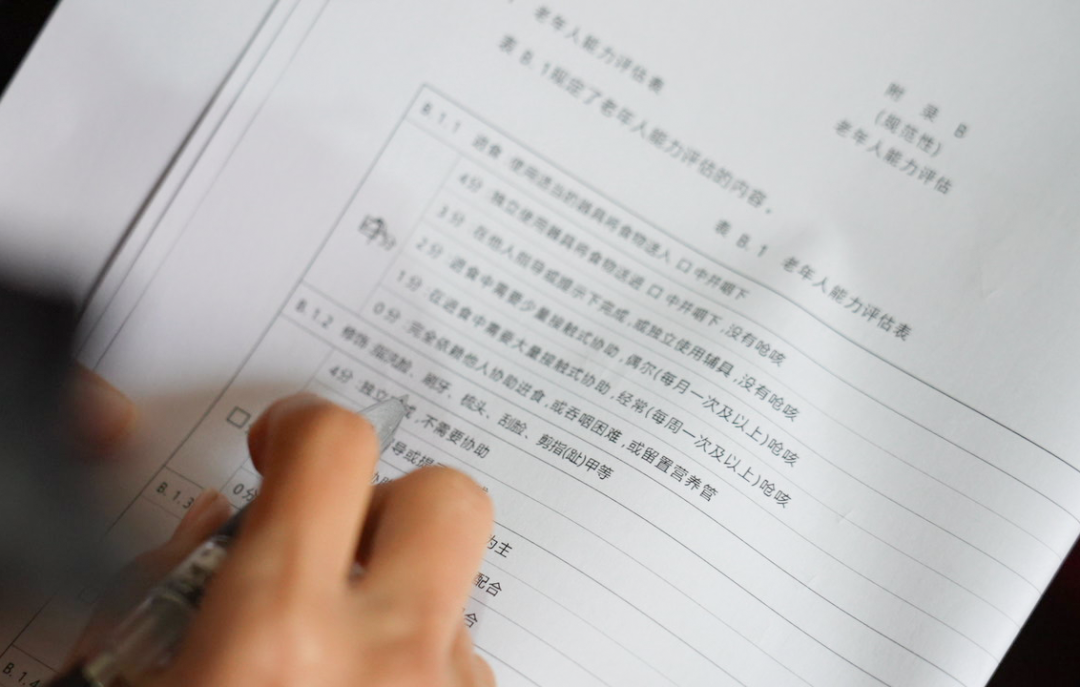 附 录 B
(规范性)
老年人能力评估
老年人能力评估表
表 B.1规定了老年人能力评估的内容。
表 B.1 老年人能力评估表
B.1.1 进食:使用适当的器具将食物送入口中并咽下
4分:独立使用器具将食物送进口中并咽下,没有呛咳
3分:在他人指导或提示下完成,或独立使用辅具,没有呛咳
2分:进食中需要少量接触式协助,偶尔(每月一次及以上)呛咳
1分:在进食中需要大量接触式协助,经常(每周一次及以上)呛咳
0分:完全依赖他人协助进食,或吞咽困难,或留置营养管
分
B.1.2 修饰:指洗脸、刷牙、梳头、刮脸、剪指(趾)甲等
4分:独立 成,不需要协助
导或提
□
协
为主
0分
配合
B.1.3
合
B.1.4